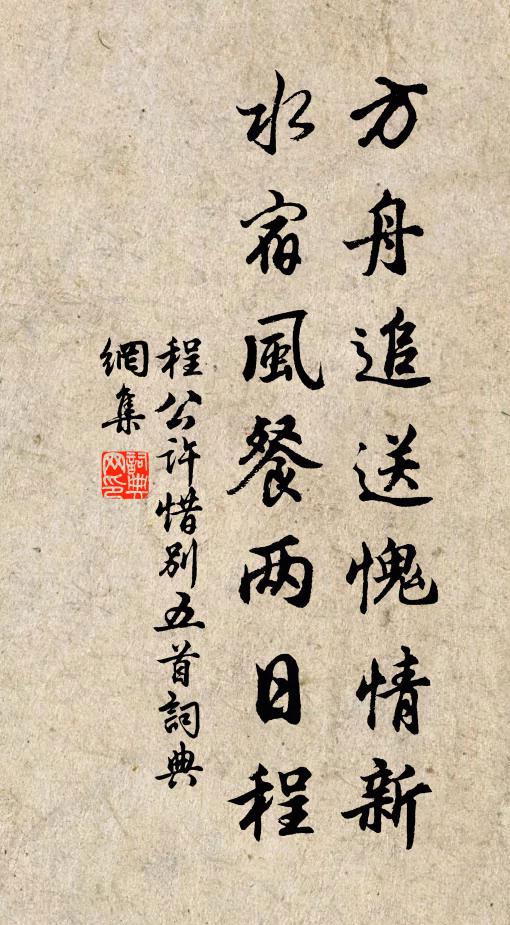 方舟追送愧情新
水宿風餐两日程
程公许惜別五首詞典
網集
詞典网印